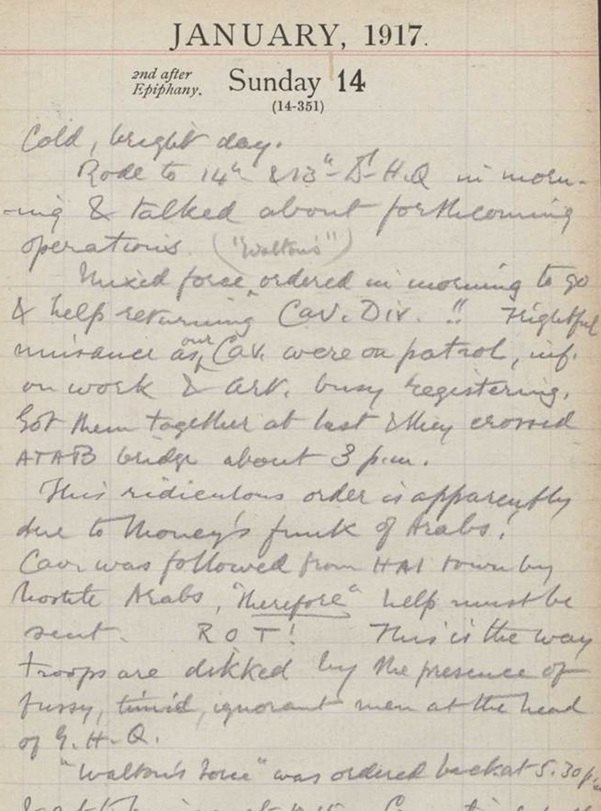 JANUARY, 1917.
2nd after
Epiphany.
Sunday 14
(14-351)
Cold, bright day.
Rode to 14th & 13th Dn H.Q in morn-
-ing & talked about forthcoming
operations. ("Walton's")
Mixed force ordered in morning to go
& help returning Cav. Div. !! Frightful
nuisance as our Cav. were on patrol, inf.
on work & Art. busy registering.
Got them together at last & they crossed
ATAB bridge about 3 p.m.
This ridiculous order is apparently
due to Money's funk of Arabs.
Cav. was followed from HAI town by
hostile Arabs, "Therefore" help must be
sent. ROT! This is the way
troops are dikked by the presence of
fussy, timid, ignorant men at the head
of G.H.Q.
"Walton's Force" was ordered back at 5.30 p.m